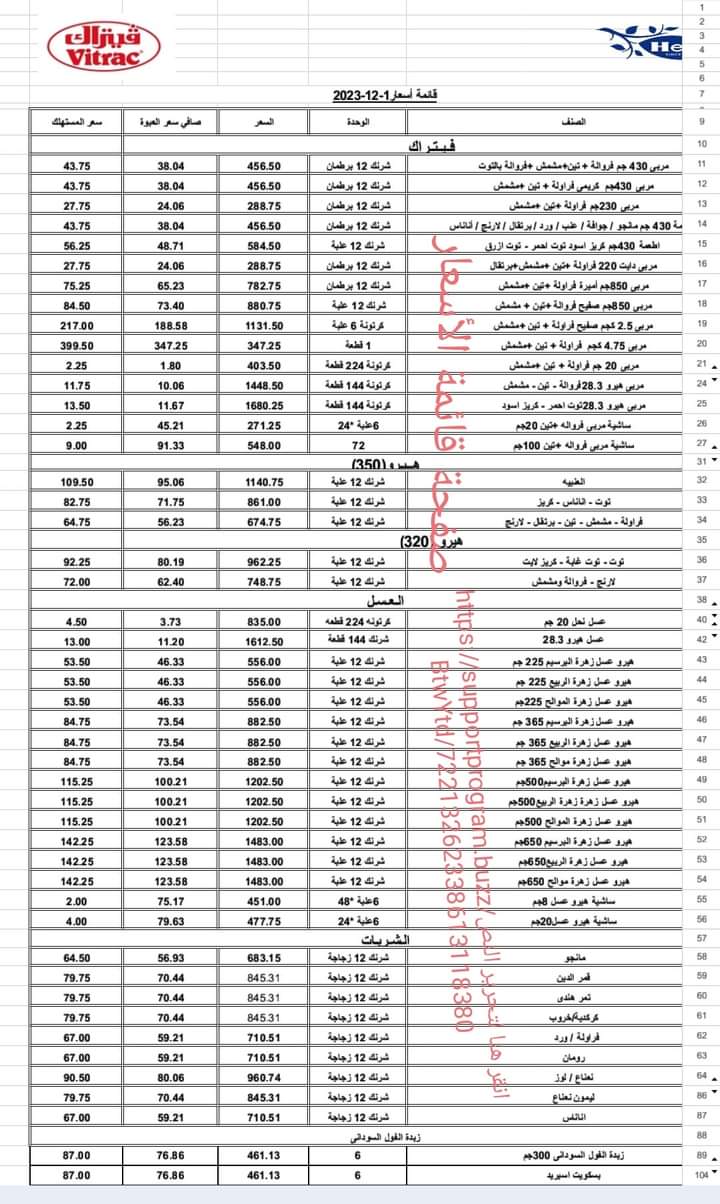 ڤيتراك
Vitrac
He
قائمة أسعار1-12-2023
الصنف الوحدة السعر صافي سعر العبوة سعر المستهلك 9
فيتراك 10
مربى 430 جم فروالة + تين+مشمش +فروالة بالتوت شرنك 12 برطمان 456.50 38.04 43.75 11
مربى 430جم كريمى فراولة + تين +مشمش شرنك 12 برطمان 456.50 38.04 43.75 12
مربى 230جم فراولة +تين +مشمش شرنك 12 برطمان 288.75 24.06 27.75 13
مة 430 جم مانجو / جوافة / عنب / ورد / برتقال / لارنج / أناناس شرنك 12 برطمان 456.50 38.04 43.75 14
اطعمة 430جم كريز اسود توت احمر - توت ازرق شرنك 12 علبة 584.50 48.71 56.25 15
مربى دايت 220 فراولة +تين +مشمش+برتقال شرنك 12 برطمان 288.75 24.06 27.75 16
مربى 850جم أميرة فراولة + تين +مشمش شرنك 12 برطمان 782.75 65.23 75.25 17
مربى 850جم صفيح فروالة +تين + مشمش شرنك 12 علبة 880.75 73.40 84.50 18
مربى 2.5 كجم صفيح فراولة + تين +مشمش كرتونة 6 علبة 1131.50 188.58 217.00 19
مربى 4.75 كجم فراولة + تين +مشمش 1 قطعة 347.25 347.25 399.50 20
مربى 20 جم فراولة + تين +مشمش كرتونة 224 قطعة 403.50 1.80 2.25 21
مربى هيرو 28.3فروالة - تين - مشمش كرتونة 144 قطعة 1448.50 10.06 11.75 24
مربى هيرو 28.3توت احمر - كريز اسود كرتونة 144 قطعة 1680.25 11.67 13.50 25
ساشية مربى فروالة +تين 20جم 6علبة *24 271.25 45.21 2.25 26
ساشية مربى فروالة +تين 100جم 72 548.00 91.33 9.00 27
هيرو (350) 31
العنبيه شرنك 12 علبة 1140.75 95.06 109.50 32
توت - اناناس - كريز شرنك 12 علبة 861.00 71.75 82.75 33
فراولة - مشمش - تين - برتقال - لارنج شرنك 12 علبة 674.75 56.23 64.75 34
هيرو (320) 35
توت - توت غابة - كريز لايت شرنك 12 علبة 962.25 80.19 92.25 36
لارنج - فروالة ومشمش شرنك 12 علبة 748.75 62.40 72.00 37
العسل 38
عسل نحل 20 جم كرتونه 224 قطعه 835.00 3.73 4.50 40
عسل هيرو 28.3 شرنك 144 قطعة 1612.50 11.20 13.00 42
هيرو عسل زهرة البرسيم 225 جم شرنك 12 علبة 556.00 46.33 53.50 43
هيرو عسل زهرة الربيع 225 جم شرنك 12 علبة 556.00 46.33 53.50 44
هيرو عسل زهرة الموالح 225جم شرنك 12 علبة 556.00 46.33 53.50 45
هيرو عسل زهرة البرسيم 365 جم شرنك 12 علبة 882.50 73.54 84.75 46
هيرو عسل زهرة الربيع 365 جم شرنك 12 علبة 882.50 73.54 84.75 47
هيرو عسل زهرة موالح 365 جم شرنك 12 علبة 882.50 73.54 84.75 48
هيرو عسل زهرة البرسيم500جم شرنك 12 علبة 1202.50 100.21 115.25 49
هيرو عسل زهرة زهرة الربيع500جم شرنك 12 علبة 1202.50 100.21 115.25 50
هيرو عسل زهرة الموالح 500جم شرنك 12 علبة 1202.50 100.21 115.25 51
هيرو عسل زهرة البرسيم 650جم شرنك 12 علبة 1483.00 123.58 142.25 52
هيرو عسل زهرة الربيع650جم شرنك 12 علبة 1483.00 123.58 142.25 53
هيرو عسل زهرة موالح 650جم شرنك 12 علبة 1483.00 123.58 142.25 54
ساشية هيرو عسل 8جم 6علبة *48 451.00 75.17 2.00 55
ساشية هيرو عسل20جم 6علبة *24 477.75 79.63 4.00 56
الشربات 57
مانجو شرنك 12 زجاجة 683.15 56.93 64.50 58
قمر الدين شرنك 12 زجاجة 845.31 70.44 79.75 59
تمر هندى شرنك 12 زجاجة 845.31 70.44 79.75 60
كركدية/خروب شرنك 12 زجاجة 845.31 70.44 79.75 61
فراولة / ورد شرنك 12 زجاجة 710.51 59.21 67.00 62
رومان شرنك 12 زجاجة 710.51 59.21 67.00 63
نعناع / لوز شرنك 12 زجاجة 960.74 80.06 90.50 64
ليمون نعناع شرنك 12 زجاجة 845.31 70.44 79.75 86
اناناس شرنك 12 زجاجة 710.51 59.21 67.00 87
زبدة الفول السودانى 88
زبدة الفول السودانى 300جم 6 461.13 76.86 87.00 89
بسكويت اسبريد 6 461.13 76.86 87.00 104
صفحة قائمة الأسعار
https://supportprogram.buzz/
BtwYtd/72213262338613118380
انقر هنا لتحرير النص